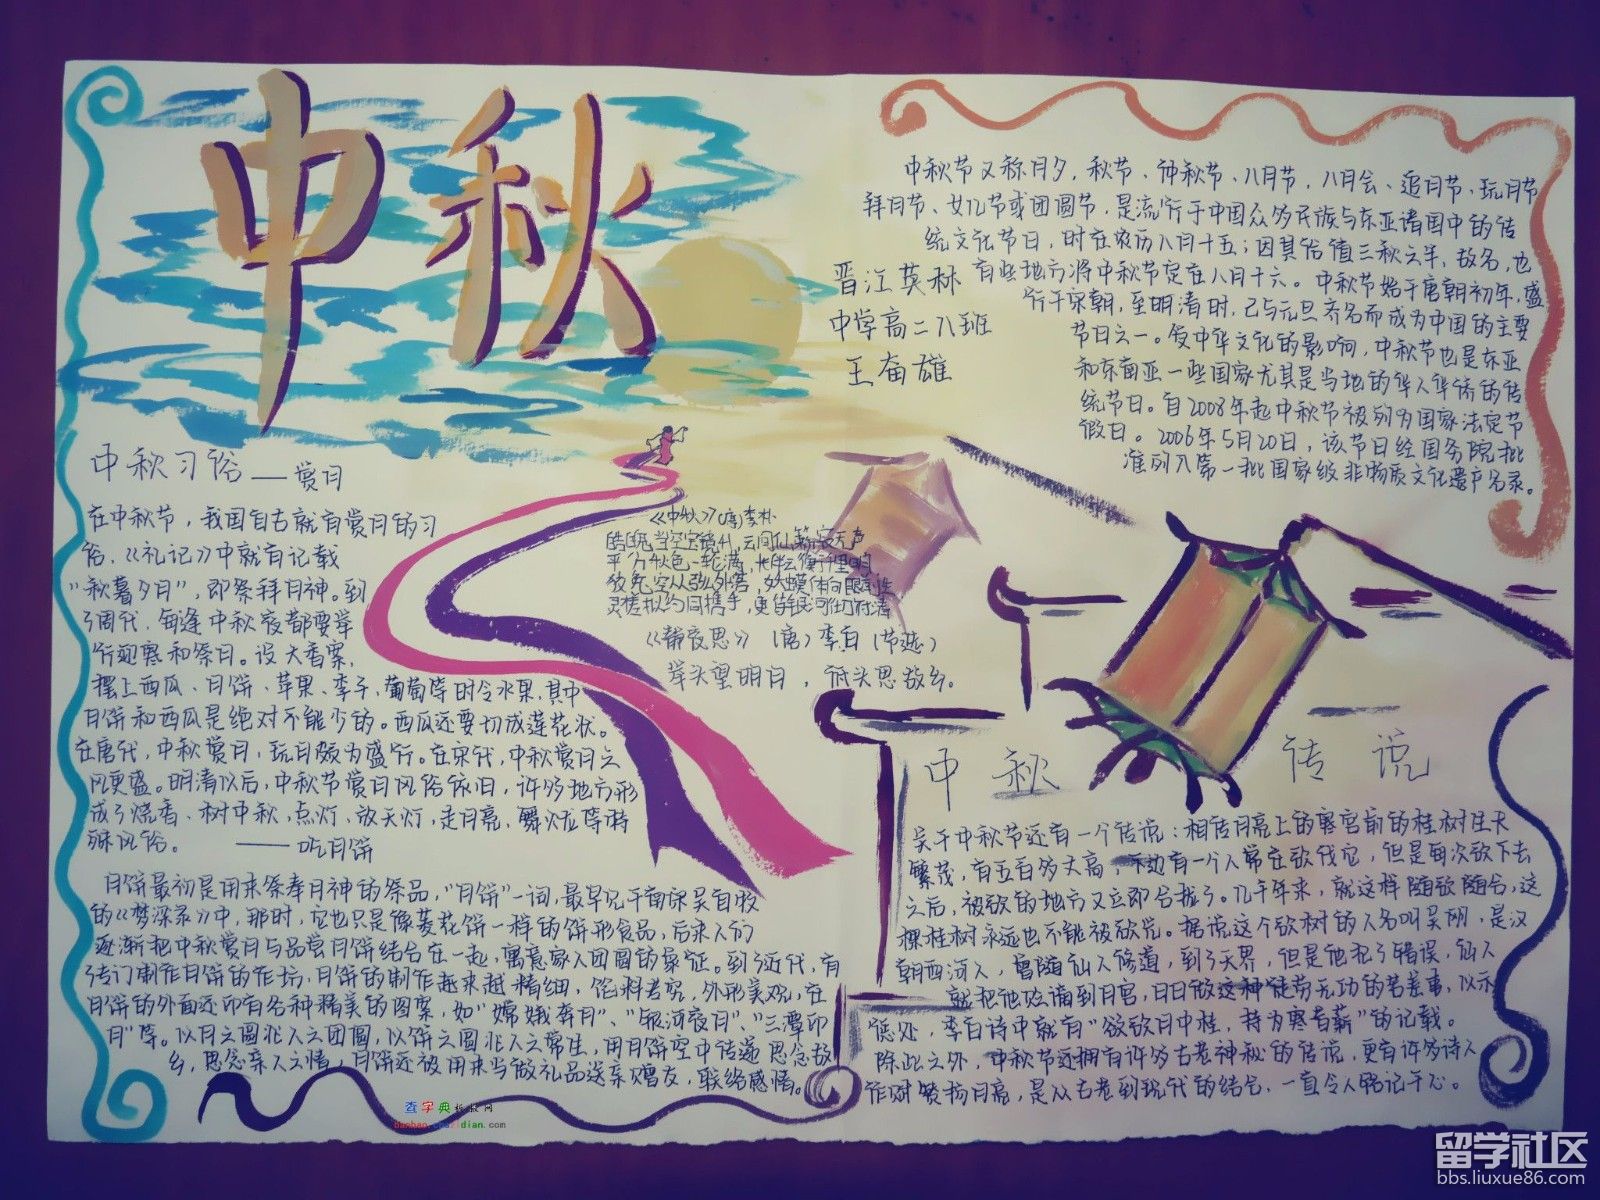 中秋
中秋节又称月夕，秋节、仲秋节、八月节，八月会、追月节、玩月节
拜月节、女儿节或团圆节，是流行于中国众多民族与东亚诸国中的传
统文化节日，时在农历八月十五；因其恰值三秋之半，故名，也
有些地方将中秋节定在八月十六。中秋节始于唐朝初年，盛
行于宋朝，至明清时，已与元旦齐名而成为中国的主要
节日之一。受中华文化的影响，中秋节也是东亚
和东南亚一些国家尤其是当地的华人华侨的传
统节日。自2008年起中秋节被列为国家法定节
假日。2006年5月20日，该节日经国务院批
准列入第一批国家级非物质文化遗产名录。
晋江英林
中学高二八班
王奋雄
中秋习俗——赏月
在中秋节，我国自古就有赏月的习
俗，《礼记》中就有记载
“秋暮夕月”，即祭拜月神。到
了周代，每逢中秋夜都要举
行迎寒和祭月。设大香案，
摆上西瓜、月饼、苹果、李子、葡萄等时令水果，其中
月饼和西瓜是绝对不能少的。西瓜还要切成莲花状。
在唐代，中秋赏月，玩月颇为盛行。在宋代，中秋赏月之
风更盛。明清以后，中秋节赏月风俗依旧，许多地方形
成了烧香、树中秋，点灯、放天灯，走月亮，舞火龙等特
殊风俗。 ——吃月饼
月饼最初是用来祭奉月神的祭品，“月饼”一词，最早见于南宋吴自牧
的《梦梁录》中，那时，它也只是像菱花饼一样的饼形食品，后来人们
逐渐把中秋赏月与品尝月饼结合在一起，寓意家人团圆的象征。到了近代，有
了专门制作月饼的作坊，月饼的制作越来越精细，馅料考究，外形美观，在
月饼的外面还印有各种精美的图案，如“嫦娥奔月”、“银河夜月”、“三潭印
月”等。以月之圆兆人之团圆，以饼之圆兆人之常生，用月饼空中传递思念故
乡，思念亲人之情，月饼还被用来当做礼品送亲赠友，联络感情。
《中秋》（唐）李朴
皓魄当空宝镜升，云间仙籁寂无声
平分秋色一轮满，长伴云衢千里明
狡兔空从弦外落，妖蟆休向眼前生
灵槎拟约同携手，更待银河彻底清
《静夜思》（唐）李白（节选）
举头望明月，低头思故乡。
中秋传说
关于中秋节还有一个传说：相传月亮上的寒宫前的桂树生长
繁茂，有五百多丈高，下边有一个人常在砍伐它，但是每次砍下去
之后，被砍的地方又立即合拢了。几千年来，就这样随砍随合，这
棵桂树永远也不能被砍光。据说这个砍树的人名叫吴刚，是汉
朝西河人，曾随仙人修道，到了天界，但是他犯了错误，仙人
就把他贬谪到月宫，日日做这种徒劳无功的苦差事，以示
惩处，李白诗中就有“欲砍月中桂，持为寒者薪”的记载。
除此之外，中秋节还拥有许多古老神秘的传说，更有许多诗人
作对赞扬月亮，是从古老到现代的结合，一直令人铭记于心。
查字典
chazidian.com
留学社区
bbs.liuxue86.com